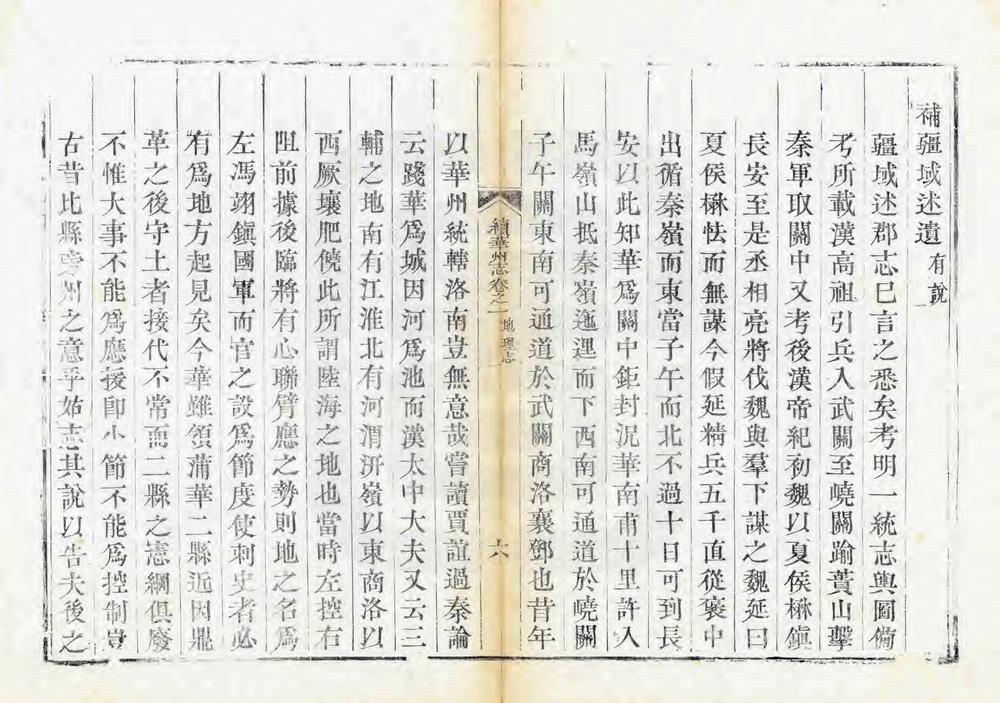 補疆域述遺有說
疆域述郡志巳言之悉矣考明一統志輿圖備
考所載漢高祖引兵入武關至嶢關踰蕢山擊
秦軍取關中又考後漢帝紀初魏以夏侯楙鎭
長安至是丞相亮將伐魏與羣下謀之魏延曰
夏侯楙怯而無謀今假延精兵五千直從褒中
出循秦嶺而東當子午而北不過十日可到長
安以此知華爲關中鉅封況華南甫十里許入
馬嶺山抵秦嶺迤逕而下西南可通道於嶢關
子午關東南可通道於武關商洛襄鄧也昔年
續華州志卷之一 地理志 十六
以華州統轄洛南豈無意哉嘗讀賈誼過秦論
云踐華爲城因河爲池而漢太中大夫又云三
輔之地南有江淮北有河渭汧嶺以東商洛以
西厥壤肥饒此所謂陸海之地也當時左控右
阻前據後臨將有心聯臂應之勢則地之名爲
左馮翊鎭國軍而官之設爲節度使刺史者必
有爲地方起見矣今華雖領蒲華二縣近因鼎
革之後守土者接代不常而二縣之憲綱俱廢
不惟大事不能爲應援卽小節不能爲控制豈
古昔比縣旁州之意乎姑志其說以告夫後之